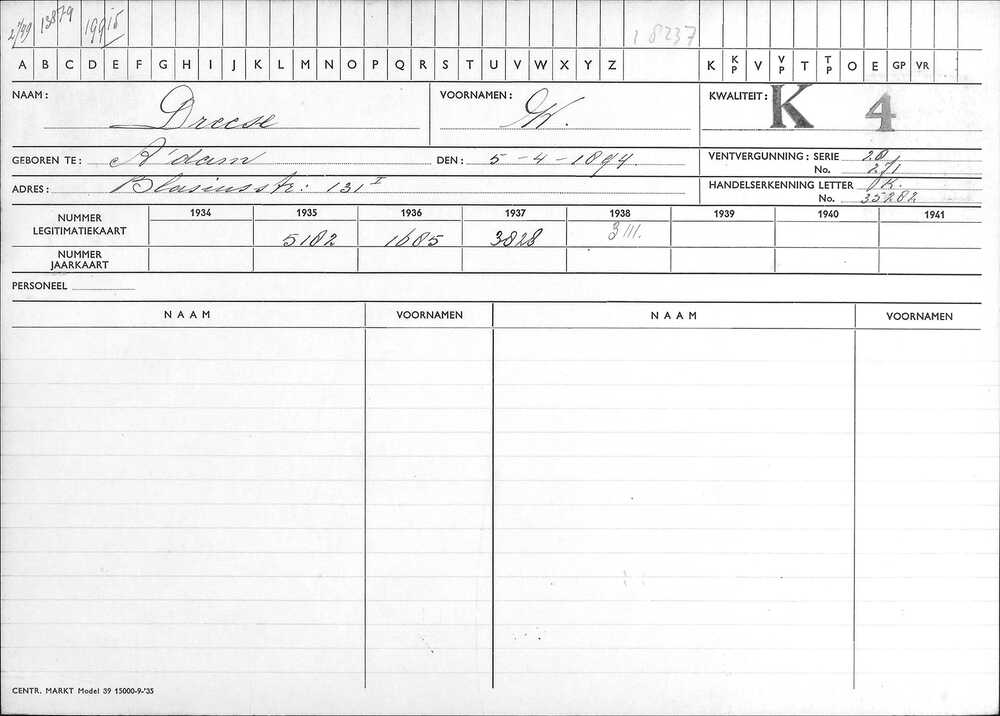 13879 19915 18237
A B C D E F G H I J K L M N O P Q R S T U V W X Y Z K KP V VP T TP O E GP VR
NAAM: Dreese VOORNAMEN: W. KWALITEIT: K 4
GEBOREN TE: A'dam DEN: 5-4-1894. VENTVERGUNNING: SERIE 20
No. 271
ADRES: Blasiusstr: 131 I HANDELSERKENNING LETTER VK.
No. 35282
1934 1935 1936 1937 1938 1939 1940 1941
NUMMER LEGITIMATIEKAART 5182 1685 3828 3111.
NUMMER JAARKAART
PERSONEEL
NAAM VOORNAMEN NAAM VOORNAMEN
CENTR. MARKT Model 39 15000-9-'35